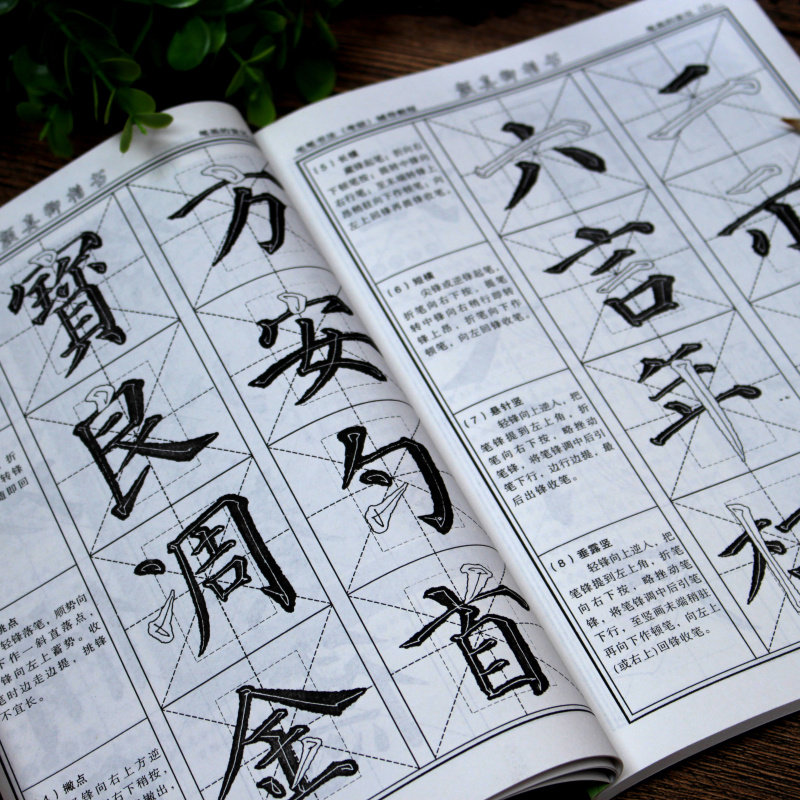 颜真卿楷书
寶
方
良
安
凋
勺
金
首
折
转锋
即回
挑点
轻锋落笔，顺势向
下作一斜直落点，
锋向左上蓄势。收
笔时边走边提，挑锋
不宜长。
撇点
锋向右上方逆
颜真卿楷书
(5) 长横
藏锋起笔；折向右
下顿笔按；提转中锋向
右行笔；至末端转锋上
昂稍驻向下作顿笔；向
左上回锋再藏锋收笔。
(6) 短横
尖锋或逆锋起笔，
折笔向右下按，提笔
转中锋向右稍行即转
锋上昂，折笔向下作
顿笔，向左回锋收笔。
(7) 悬针竖
轻锋向上逆入，把
笔锋提到左上角，折
笔向右下按，略挫动
笔锋，将笔锋调中后引
笔下行，边行边提，最
后出锋收笔。
(8) 垂露竖
轻锋向上逆入，把
笔锋提到左上角，折笔
向右下按，略挫动笔
锋，将笔锋调中后引笔
下行，至竖画末端稍驻
再向下作顿笔，向左上
(或右上)回锋收笔。
六
二
言
正
羊
村